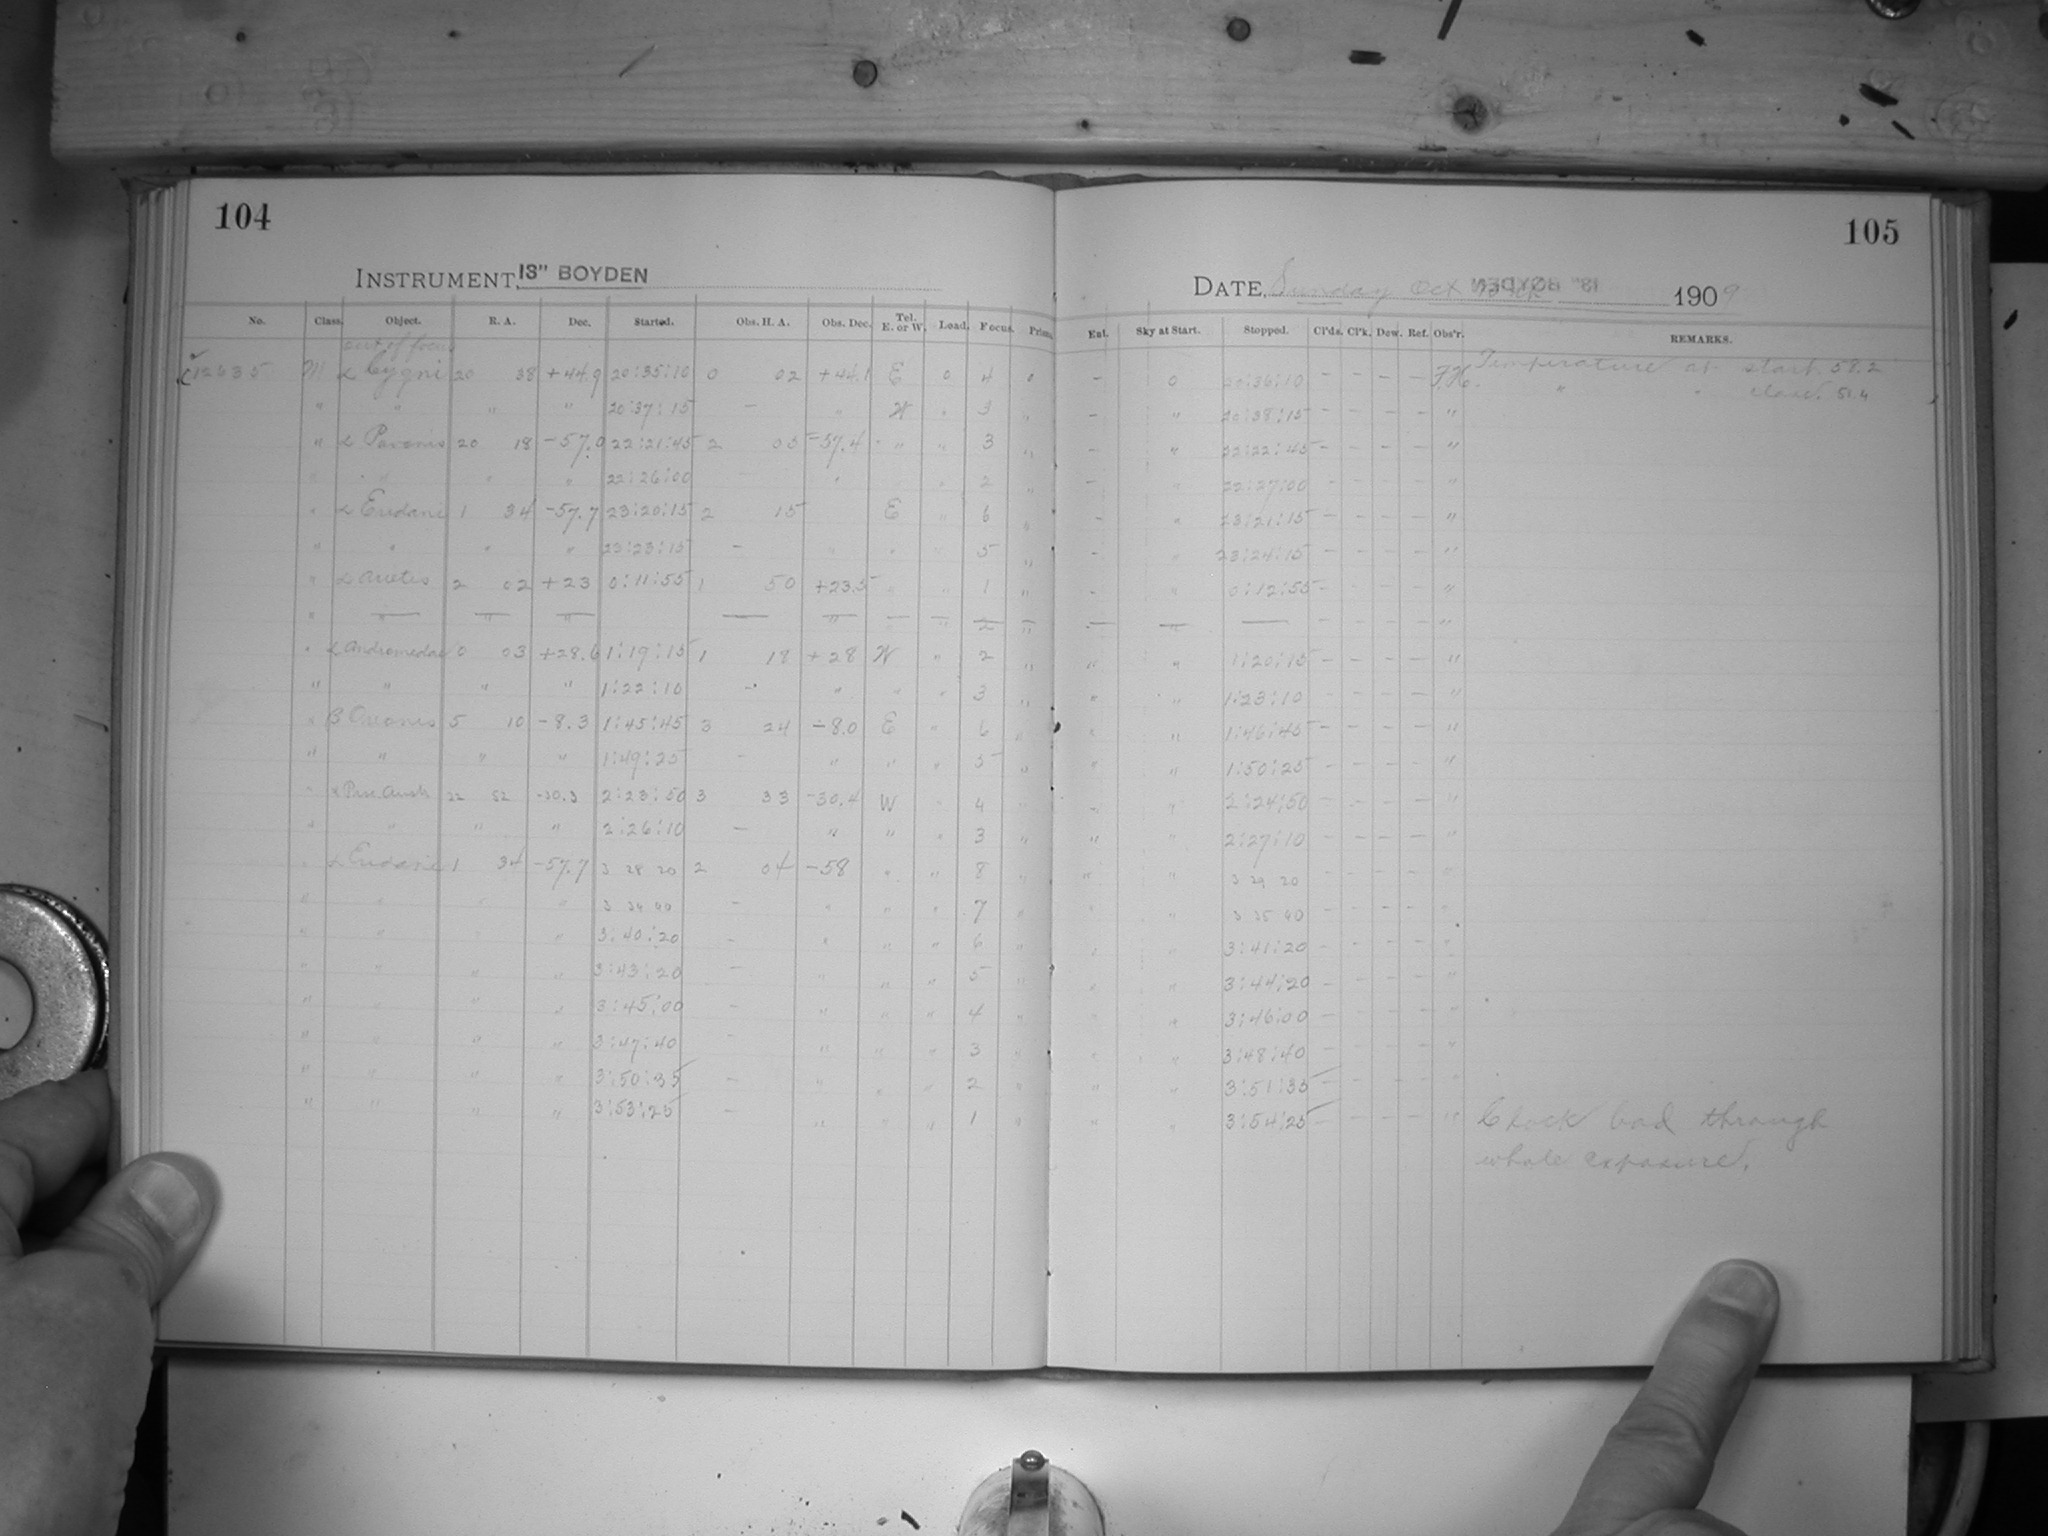 104
105
INSTRUMENT, 13" BOYDEN
DATE, Sunday Oct 1909
No. Class. Object. R. A. Dec. Started. Obs. H. A. Obs. Dec. Tel. E. or W. Load. Focus. Prism. Ent. Sky at Start. Stopped. Cl'ds. Cl'k. Dew. Ref. Obs'r. REMARKS.
out of focus
M α Cygni 20 38 +44.9 20:35:10 0 02 +44.1 E 0 4 0 - 0 20:36:10 - - - - Temperature at start 58.2
" " " " 20:37:15 - " W " 3 " - " 20:38:15 - - - - " " " close 51.4
" α Pavonis 20 18 -57.0 22:21:45 2 03 -57.4 " " 3 " - " 22:22:45 - - - - "
22:26:00 2 " - " 22:27:00 - - - - "
" α Eridani 1 34 -57.7 23:20:15 2 15 E " 6 " - " 23:21:15 - - - - "
" " " " 23:23:15 - " " " 5 " - " 23:24:15 - - - - "
" α Arietis 2 02 +23 0:11:55 1 50 +23.5 " " 1 " - " 0:12:55 - - - - "
" " " " " " 2 " " - - - - "
" α Andromedae 0 03 +28.6 1:19:15 1 18 +28 W " 2 " " " 1:20:15 - - - - "
" " " " 1:22:10 - " " " 3 " " " 1:23:10 - - - - "
" β Orionis 5 10 -8.3 1:45:45 3 24 -8.0 E " 6 " " " 1:46:45 - - - - "
" " " " 1:49:25 - " " " 5 " " " 1:50:25 - - - - "
" α Pisc. Aust. 22 52 -30.3 2:23:50 3 33 -30.4 W " 4 " " " 2:24:50 - - - - "
" " " " 2:26:10 - " " " 3 " " " 2:27:10 - - - - "
" α Eridani 1 34 -57.7 3 28 20 2 04 -58 " " 8 " " " 3 29 20 - - - - "
" " " " 3 34 40 - " " " 7 " " " 3 35 40 - - - - "
" " " " 3:40:20 - " " " 6 " " " 3:41:20 - - - - "
" " " " 3:43:20 - " " " 5 " " " 3:44:20 - - - - "
" " " " 3:45:00 - " " " 4 " " " 3:46:00 - - - - "
" " " " 3:47:40 - " " " 3 " " " 3:48:40 - - - - "
" " " " 3:50:35 - " " " 2 " " " 3:51:35 - - - - "
" " " " 3:53:25 - " " " 1 " " " 3:54:25 - - - - " Clock bad through
whole exposure.